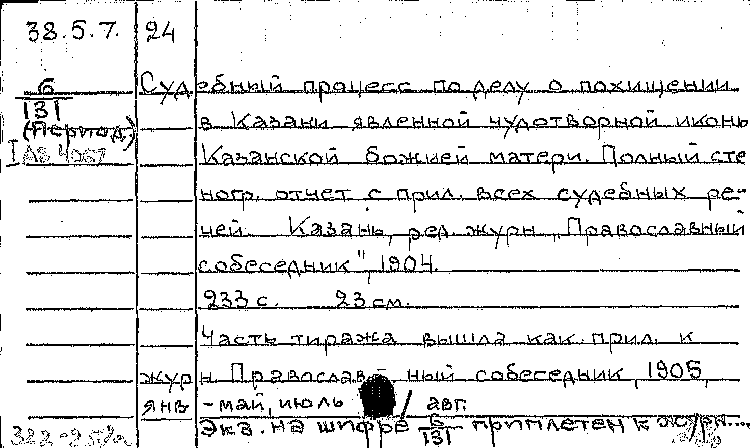 38.5.7. 24
Б
131
(Период)
Судебный процесс по делу о похищении
в Казани явленной чудотворной иконы
Казанской божией матери. Полный сте
ногр. отчет с прил. всех судебных ре-
чей. Казань, ред. журн „Православный
собеседник", 1904.
233 с. 23 см.
Часть тиража вышла как прил. к
журн Православ ный собеседник, 1905,
янв - май, июль авг.
Экз. на шифре Б/131 приплетен к журн...